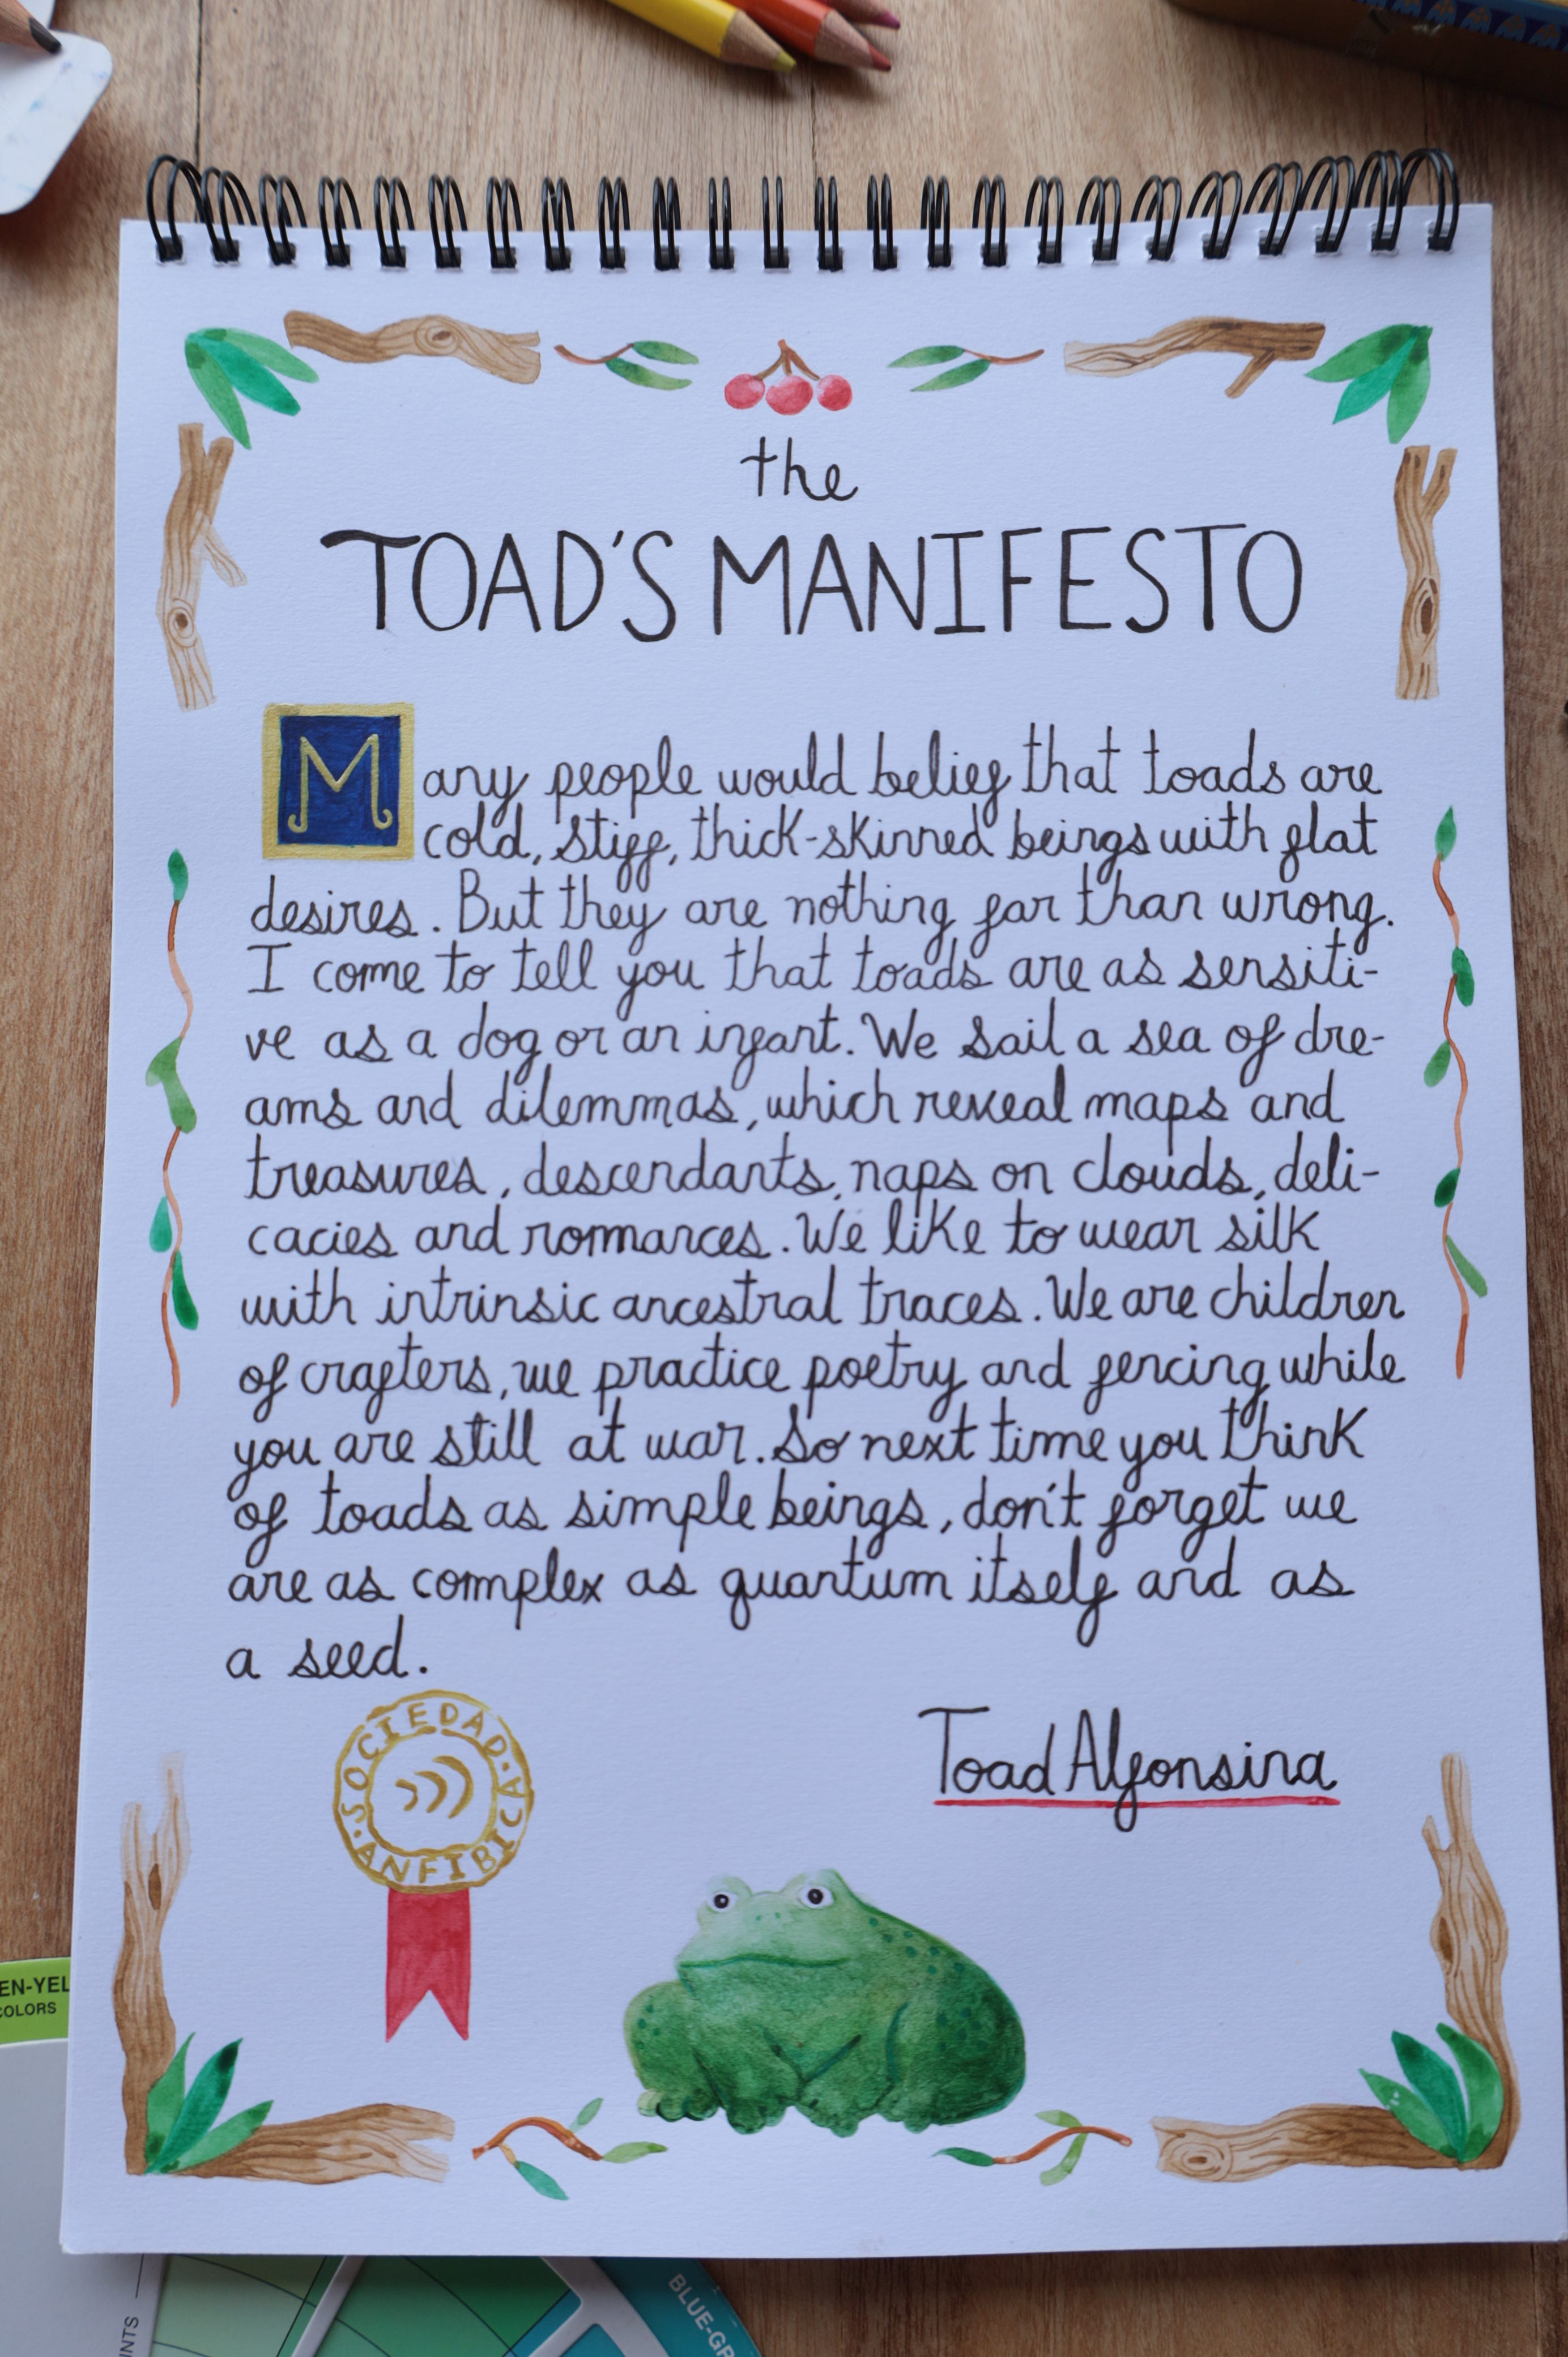 the
TOAD'S MANIFESTO
Many people would belief that toads are
cold, stiff, thick-skinned beings with flat
desires. But they are nothing far than wrong.
I come to tell you that toads are as sensiti-
ve as a dog or an infant. We sail a sea of dre-
ams and dilemmas, which reveal maps and
treasures, descendants, naps on clouds, deli-
cacies and rommances. We like to wear silk
with intrinsic ancestral traces. We are children
of crafters, we practice poetry and fencing while
you are still at war. So next time you think
of toads as simple beings, don't forget we
are as complex as quantum itself and as
a seed.
SOCIEDAD · ANFIBICA ·
Toad Alfonsina
EN-YEL
COLORS
INTS
BLUE-GR